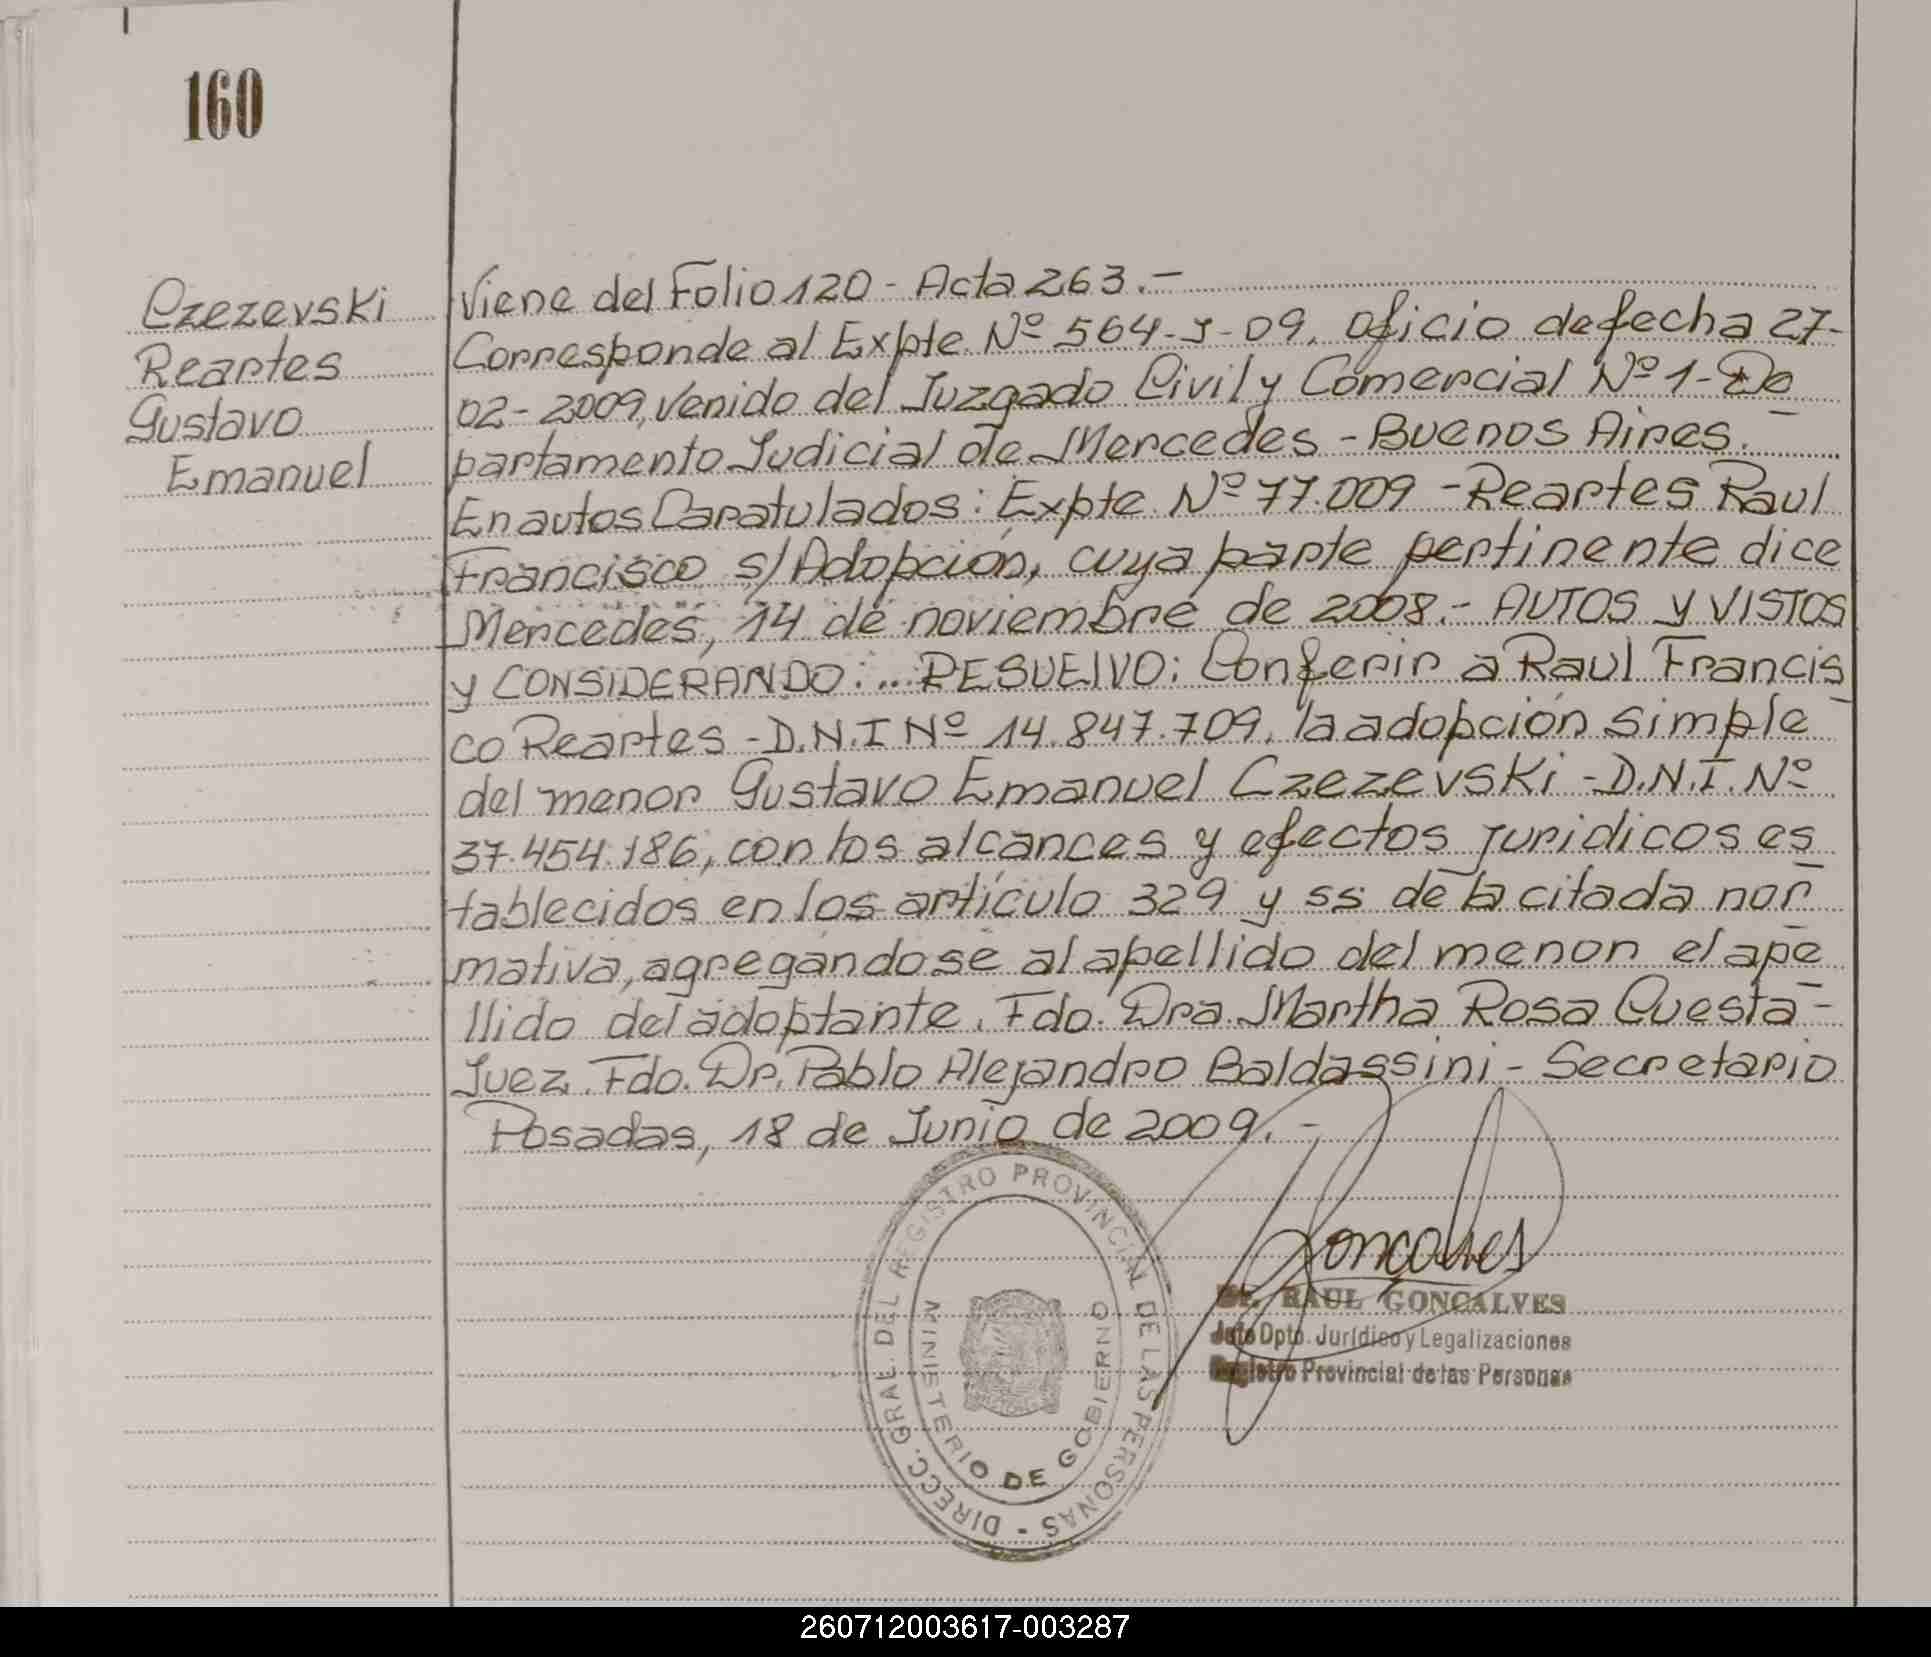 160
Czezevski
Reartes
Gustavo
Emanuel
Viene del Folio 120 - Acta 263.-
Corresponde al Expte. Nº 564-J-09. Oficio de fecha 27-
02-2009, venido del Juzgado Civil y Comercial Nº 1- De
partamento Judicial de Mercedes - Buenos Aires.
En autos Caratulados: Expte. Nº 77.009 - Reartes Raul
Francisco s/ Adopción, cuya parte pertinente dice
Mercedes, 14 de noviembre de 2008.- AUTOS y VISTOS
y CONSIDERANDO:... RESUELVO: Conferir a Raul Francis
co Reartes - D.N.I Nº 14.847.709. la adopción simple
del menor Gustavo Emanuel Czezevski - D.N.I. Nº
37.454.186, con los alcances y efectos juridicos es
tablecidos en los artículo 329 y ss de la citada nor
mativa, agregándose al apellido del menor el ape
llido del adoptante. Fdo. Dra. Martha Rosa Cuesta -
Juez. Fdo. Dr. Pablo Alejandro Baldassini - Secretario
Posadas, 18 de Junio de 2009.-
DIRECC. GRAL. DEL REGISTRO PROVINCIAL DE LAS PERSONAS -
MINISTERIO DE GOBIERNO
Goncalves
Dr. RAUL GONCALVES
Jefe Dpto. Jurídico y Legalizaciones
Registro Provincial de las Personas
260712003617-003287